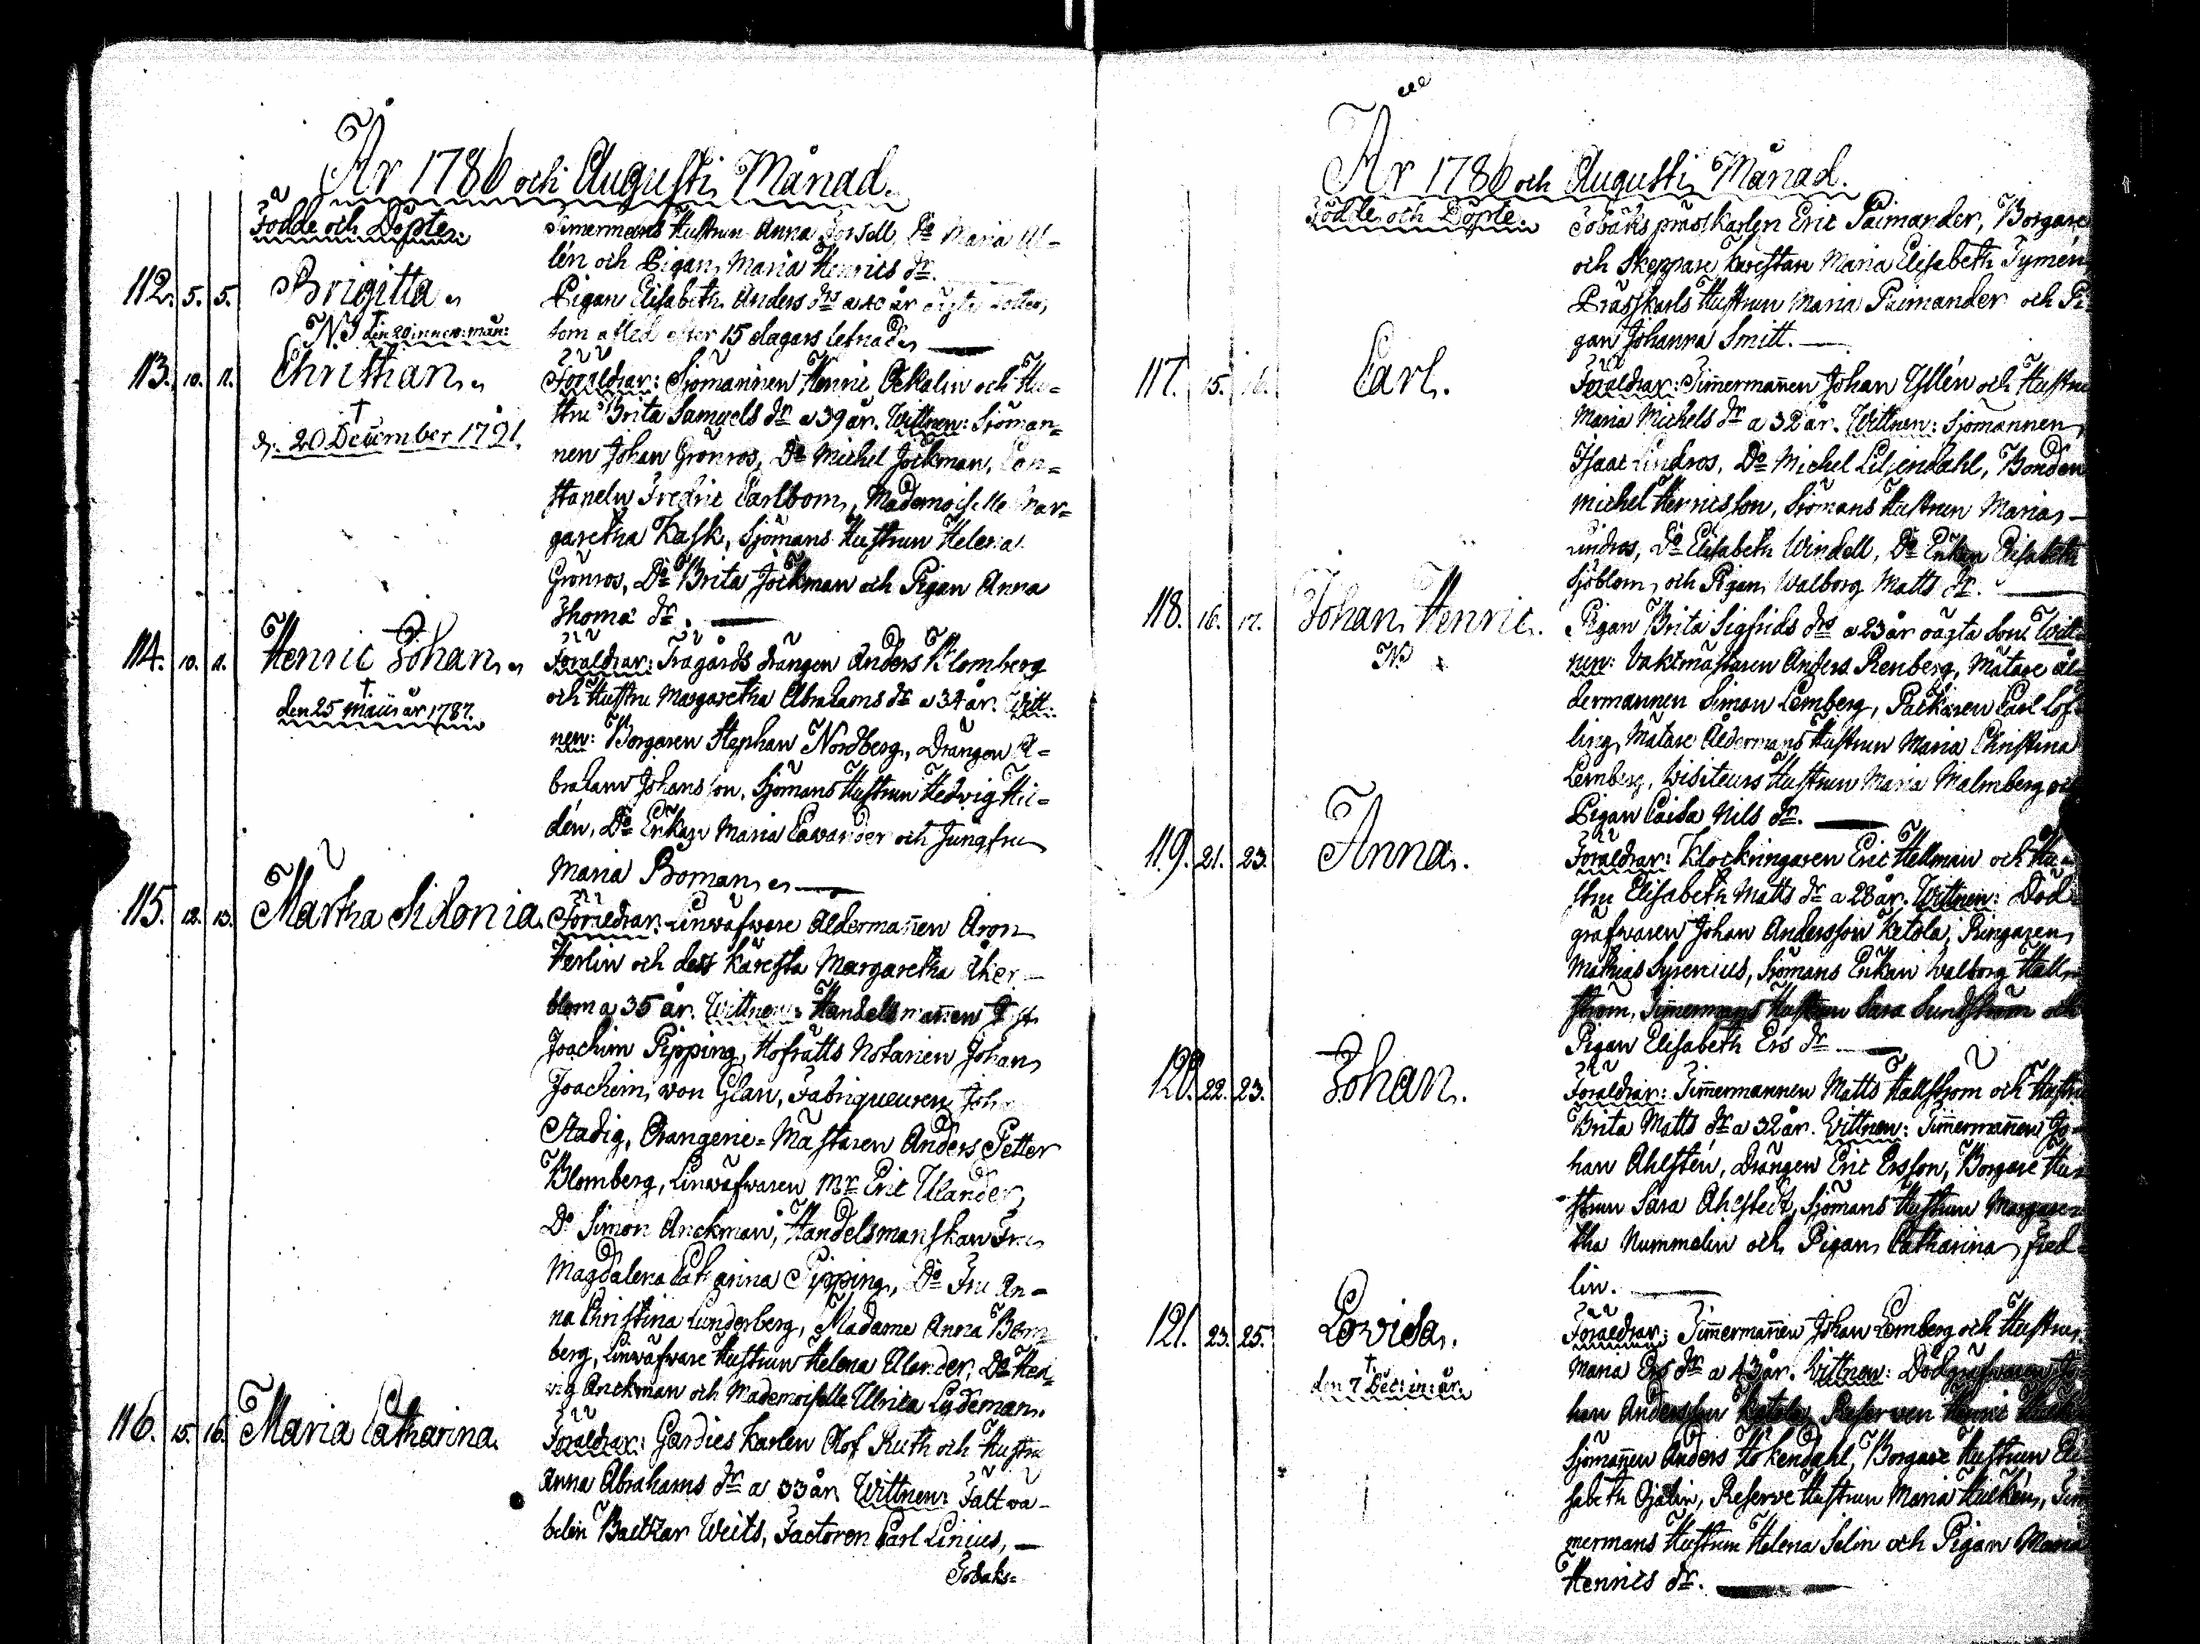 År 1786 och Augusti Månad.
Födde och Döpte.
Timermans Hustrun Anna Forsell, Do Maria
lén och Pigan Maria Henrics dr.
112. 5. 5. Brigitta
Pigan Elisabeth Anders drs a 40 år oägta dotter,
N. † den 20 innev: mån:
som afled efter 15 dagars lefnad
113. 10. 11. Christian
† d: 20 December 1791.
Föräldrar: Sjömannen Henric Ockalin och Hu=
stru Brita Samuels dr a 39 år. Wittnen: Sjöman=
nen Johan Grönros, Do Michel Jöckman, Con=
stapeln Fredric Carlbom, Mademoiselle Mar=
garetha Kask, Sjömans Hustrun Helena
Grönros, Do Brita Jöckman och Pigan Anna
Thomæ dr.
114. 10. 11. Henric Johan
† den 25 Maii år 1787.
Föräldrar: Trägårds drängen Anders Blomberg
och Hustru Margaretha Abrahams dr a 34 år. Witt=
nen: Borgaren Stephan Nordberg, Drängen A=
braham Johansson, Sjömans Hustrun Hedvig Hil=
dén, Do Enkan Maria Cavander och Jungfru
Maria Boman
115. 12. 13. Martha Sidonia.
Föräldrar: Linwäfvare Åldermañen Aron
Herlin och dess Käresta Margaretha Åker=
blom a 35 år. Wittnen: Handelsmañen
Joachim Pipping, Hofrätts Notarien Johan
Joachim von Glan, Fabriqueuren Joh
Stadig, Orangerie=Mästaren Anders Petter
Blomberg, Linwäfwaren Mr Eric Ulander
Do Simon Anckman, Handelsmanskan Fru
Magdalena Catharina Pipping, Do Fru An=
na Christina Lunderberg, Madame Anna Blom=
berg, Linwäfware Hustrun Helena Ulander, Do Hed=
vig Anckman och Mademoiselle Ulrica Lydeman.
116. 15. 16. Maria Catharina.
Föräldrar: Gardies Karlen Olof Ruth och Hustru
Anna Abrahams dr a 33 år. Wittnen: Fält wä=
beln Baltzar Weits, Factoren Carl Linius,
Tobaks=
År 1786 och Augusti Månad.
Födde och Döpte.
Tobaks präss karlen Eric Paimander, Borgare
och Skeppare Kärestan Maria Elisabeth Tymén
Prässkarls Hustrun Maria Paimander och Pi=
gan Johanna Smitt.
117. 15. 16. Carl.
Föräldrar: Timermañen Johan Yllén och Hustru
Maria Michels dr a 32 år. Wittnen: Sjömannen
Isaac Lindros, Do Michel Liljendahl, Bonden
Michel Henricsson, Sjömans Hustrun Maria
Lindros, Do Elisabeth Windell, Do Enkan Elisabeth
Sjöblom, och Pigan Walborg Matts dr.
118. 16. 17. Johan Henric.
N.
Pigan Brita Sigfrids drs a 23 år oägta Son. Witt=
nen: Vaktmästaren Anders Renberg, Mätare ål=
dermannen Simon Lemberg, Packaren Carl Löf=
ling, Mätare Åldermans Hustrun Maria Christina
Lemberg, Visiteurs Hustrun Maria Malmberg och
Pigan Caisa Nils dr.
119. 21. 23. Anna.
Föräldrar: Klockringaren Eric Hellman och Hu=
stru Elisabeth Matts dr a 28 år. Wittnen: Död=
gräfwaren Johan Andersson Ketola, Ringaren
Mathias Syrenius, Sjömans Enkan Walborg Hall=
ström, Timermans Hustrun Sara Sundström och
Pigan Elisabeth Ers dr.
120. 22. 23. Johan.
Föräldrar: Timermannen Matts Hallström och Hustru
Brita Matts dr a 32 år. Wittnen: Timermañen Jo=
han Ahlstén, Drängen Eric Ersson, Borgare Hu=
strun Sara Ahlstedt, Sjömans Hustrun Margare=
tha Nummelin och Pigan Catharina Hed=
lin.
121. 23. 25. Lovisa.
† den 7 Dec: in: år.
Föräldrar: Timermañen Johan Lemberg och Hustru
Maria Ers dr a 43 år. Wittnen: Dödgräfwaren Jo=
han Andersson Ketola, Reserven Henric
Sjömañen Anders Hökendahl, Borgare Hustrun Eli=
sabeth Öjelin, Reserve Hustrun Maria Tim=
mermans Hustrun Helena Selin och Pigan Maria
Henrics dr.